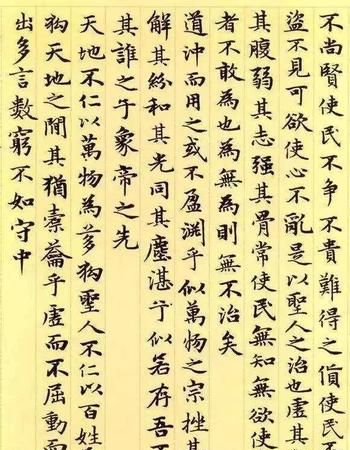 不尚賢使民不争不貴難得之貨使民不
盜不見可欲使心不亂是以聖人之治也虛其
其腹弱其志强其骨常使民無知無欲使
者不敢為也為無為則無不治矣
道沖而用之或不盈淵乎似萬物之宗挫其
解其紛和其光同其塵湛乎似若存吾不
其誰之子象帝之先
天地不仁以萬物為芻狗聖人不仁以百姓
狗天地之間其猶橐籥乎虛而不屈動而
出多言數窮不如守中